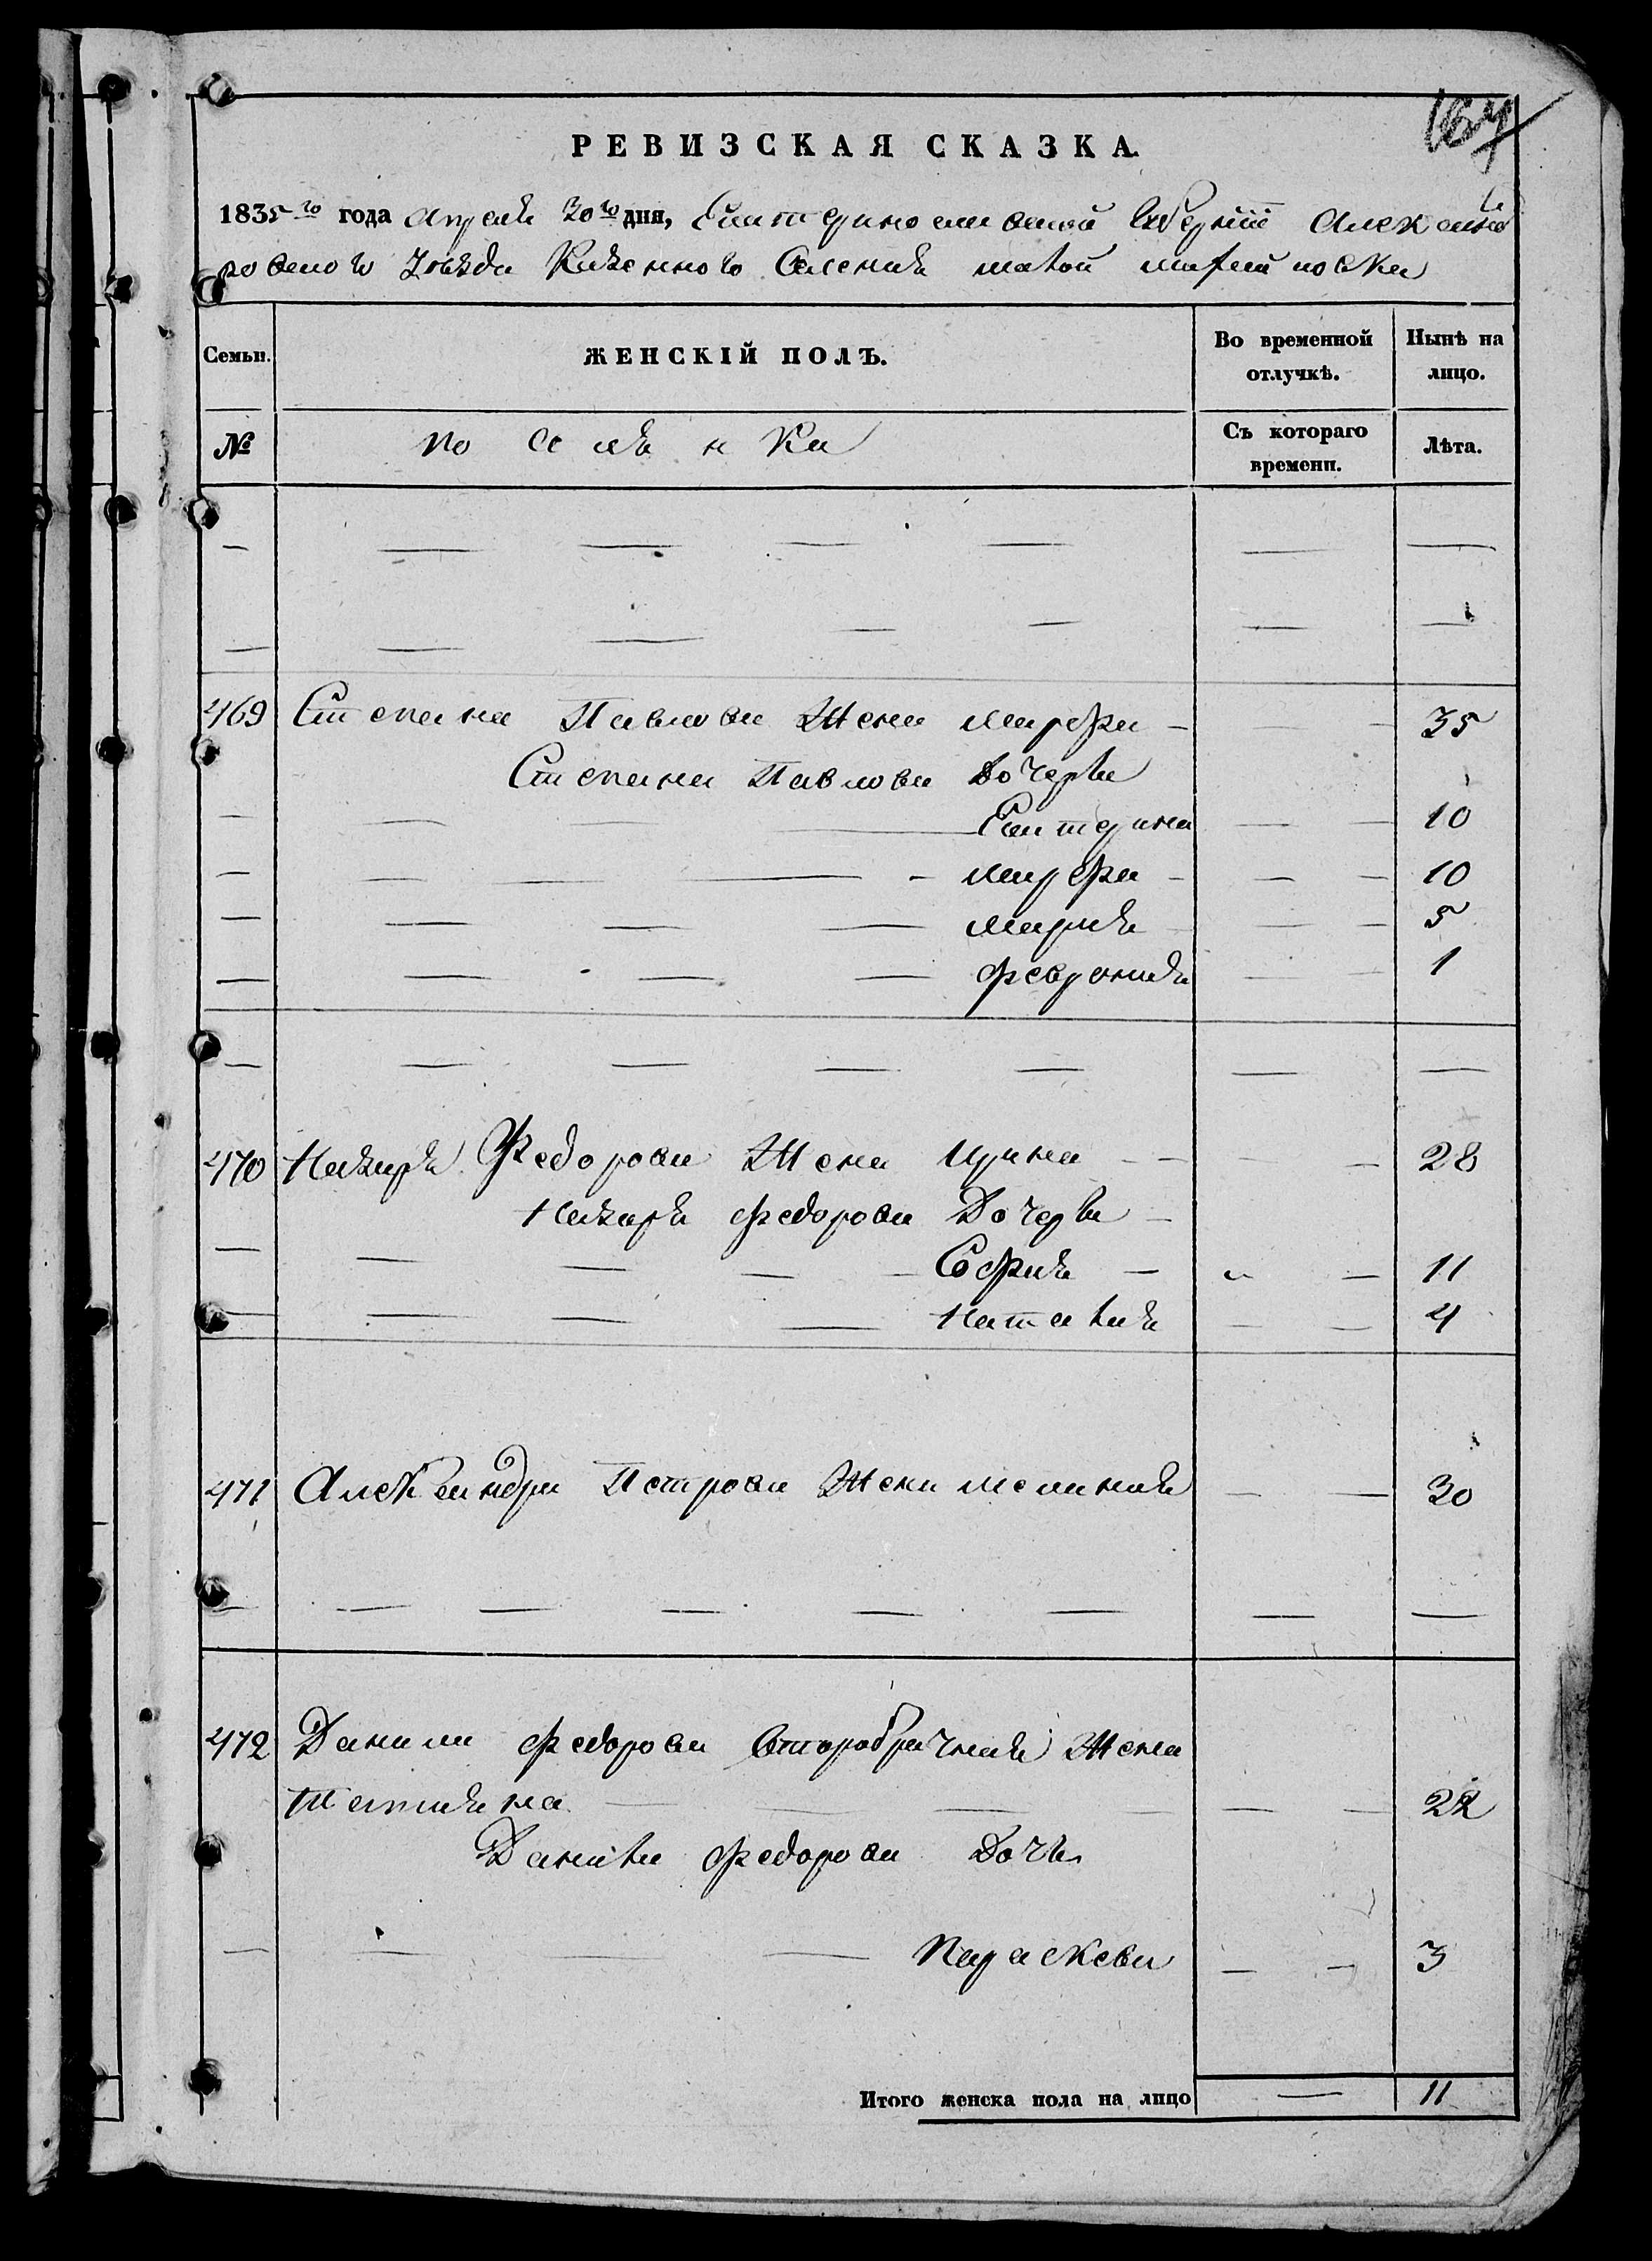 167
РЕВИЗСКАЯ СКАЗКА.
1835го года апреля 30го дня, Екатеринославской Губернiи Александ
ровского Уезда Казенного Селенiя малой михайловки
Семьи. ЖЕНСКІЙ ПОЛЪ. Во временной отлучкѣ. Нынѣ на лицо.
№ поселянки Съ котораго времени. Лѣта.
469 Степана Павлова Жена марфа 35
Степана Павлова дочери
Екатерина 10
марфа 10
мария 5
феврония 1
470 Назаря Федорова Жена Ирина 28
Назаря федорова Дочери
София 11
Наталия 4
471 Александра Петрова Жена мелания 30
472 Данила федорова второбрачная Жена
Татияна 22
Данила федорова дочь
Параскева 3
Итого женска пола на лицо — 11